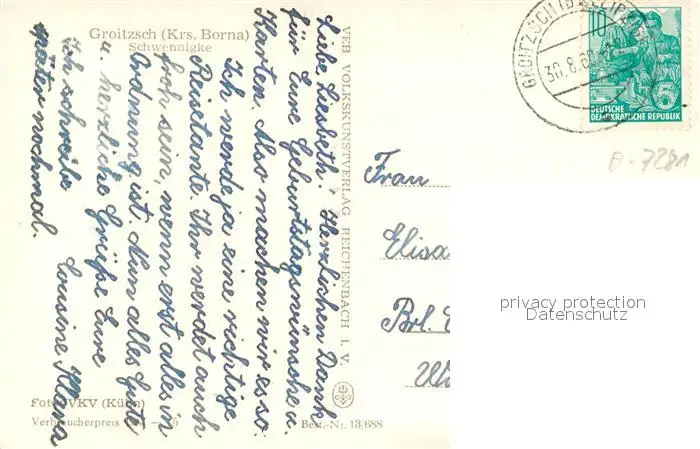 Groitzsch (Krs. Borna)
Schwennigke
Liebe Liesbeth! Herzlichen Dank
für Eure Geburtstagswünsche u.
Karten. Also machen wir es so.
Ich werde ja eine richtige
Reisetante. Ihr werdet auch
froh sein, wenn erst alles in
Ordnung ist. Nun alles Gute
u. herzliche Grüße Eure
Cousine Klara
Ich schreibe
später nochmal.
VEB VOLKSKUNSTVERLAG REICHENBACH i. V.
Foto: VKV (Kühn)
Verbraucherpreis
Best.-Nr. 13/688
GROITZSCH (BZ LEIPZIG)
30.8.
10
5
DEUTSCHE
DEMOKRATISCHE REPUBLIK
0-7281
Frau
Elisa
Brl.
privacy protection
Datenschutz